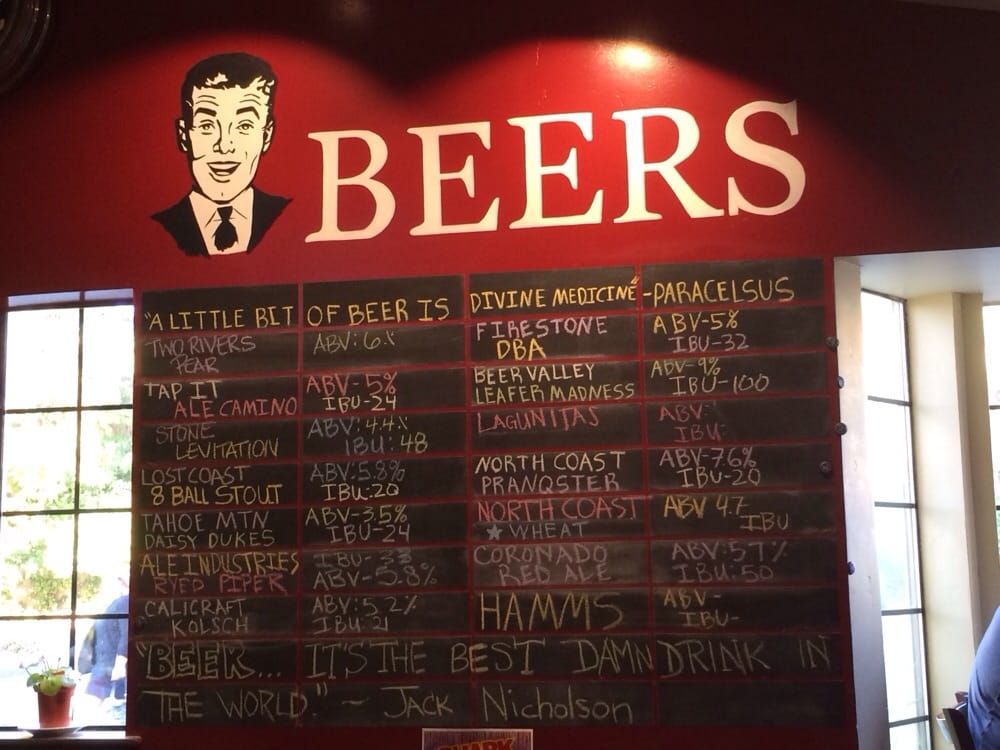 BEERS
"A LITTLE BIT OF BEER IS DIVINE MEDICINE" -PARACELSUS
TWO RIVERS
PEAR
ABV: 6.%
TAP IT
ALE CAMINO
ABV-5%
IBU-24
STONE
LEVITATION
ABV: 4.4%
IBU: 48
LOST COAST
8 BALL STOUT
ABV:5.8%
IBU:20
TAHOE MTN
DAISY DUKES
ABV-3.5%
IBU-24
ALE INDUSTRIES
RYED PIPER
IBU-33
ABV-5.8%
CALICRAFT
KOLSCH
ABV:5.2%
IBU:21
FIRESTONE
DBA
ABV-5%
IBU-32
BEER VALLEY
LEAFER MADNESS
ABV-9%
IBU-100
LAGUNITAS
ABV:
IBU:
NORTH COAST
PRANQSTER
ABV-7.6%
IBU-20
NORTH COAST
★ WHEAT
ABV 4.7
IBU
CORONADO
RED ALE
ABV:5.7%
IBU:50
HAMMS
ABV-
IBU-
"BEER... IT'S THE BEST DAMN DRINK IN
THE WORLD." ~ Jack Nicholson